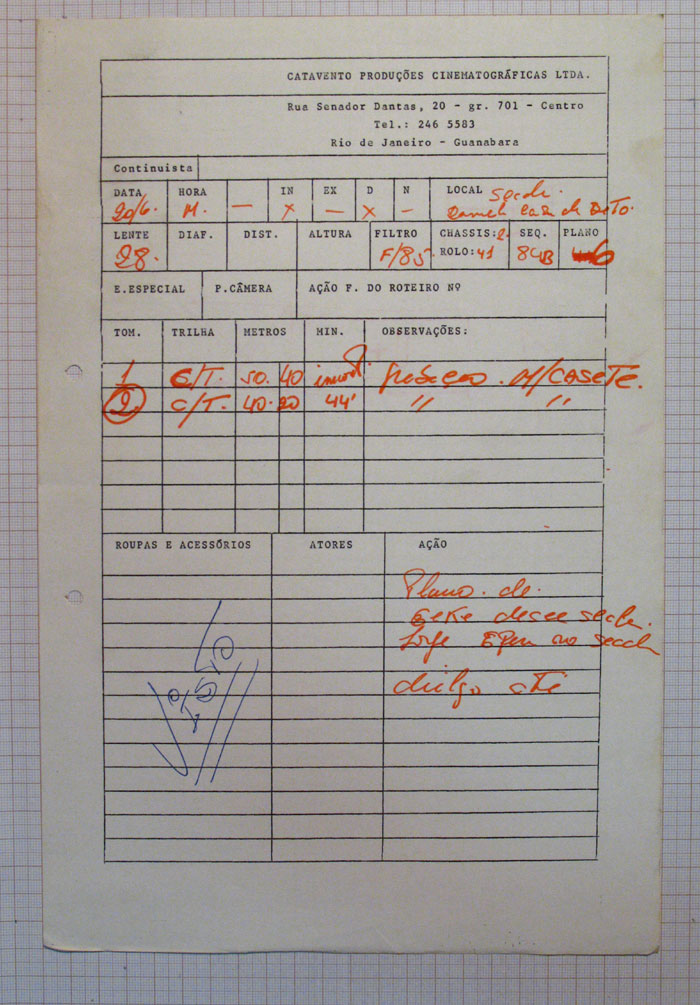 CATAVENTO PRODUÇÕES CINEMATOGRÁFICAS LTDA.
Rua Senador Dantas, 20 - gr. 701 - Centro
Tel.: 246 5583
Rio de Janeiro - Guanabara
Continuista
DATA HORA IN EX D N LOCAL
20/6. M. — X — X —
LENTE DIAF. DIST. ALTURA FILTRO CHASSIS: 2. SEQ. PLANO
28. F/85. ROLO: 41 84B 6
E.ESPECIAL P.CÂMERA AÇÃO F. DO ROTEIRO Nº
TOM. TRILHA METROS MIN. OBSERVAÇÕES:
1 C/T. 50. 40 M/CASETE.
2 C/T. 40. 20 44' " "
ROUPAS E ACESSÓRIOS ATORES AÇÃO
Plano de
desce
no
até
VISTO